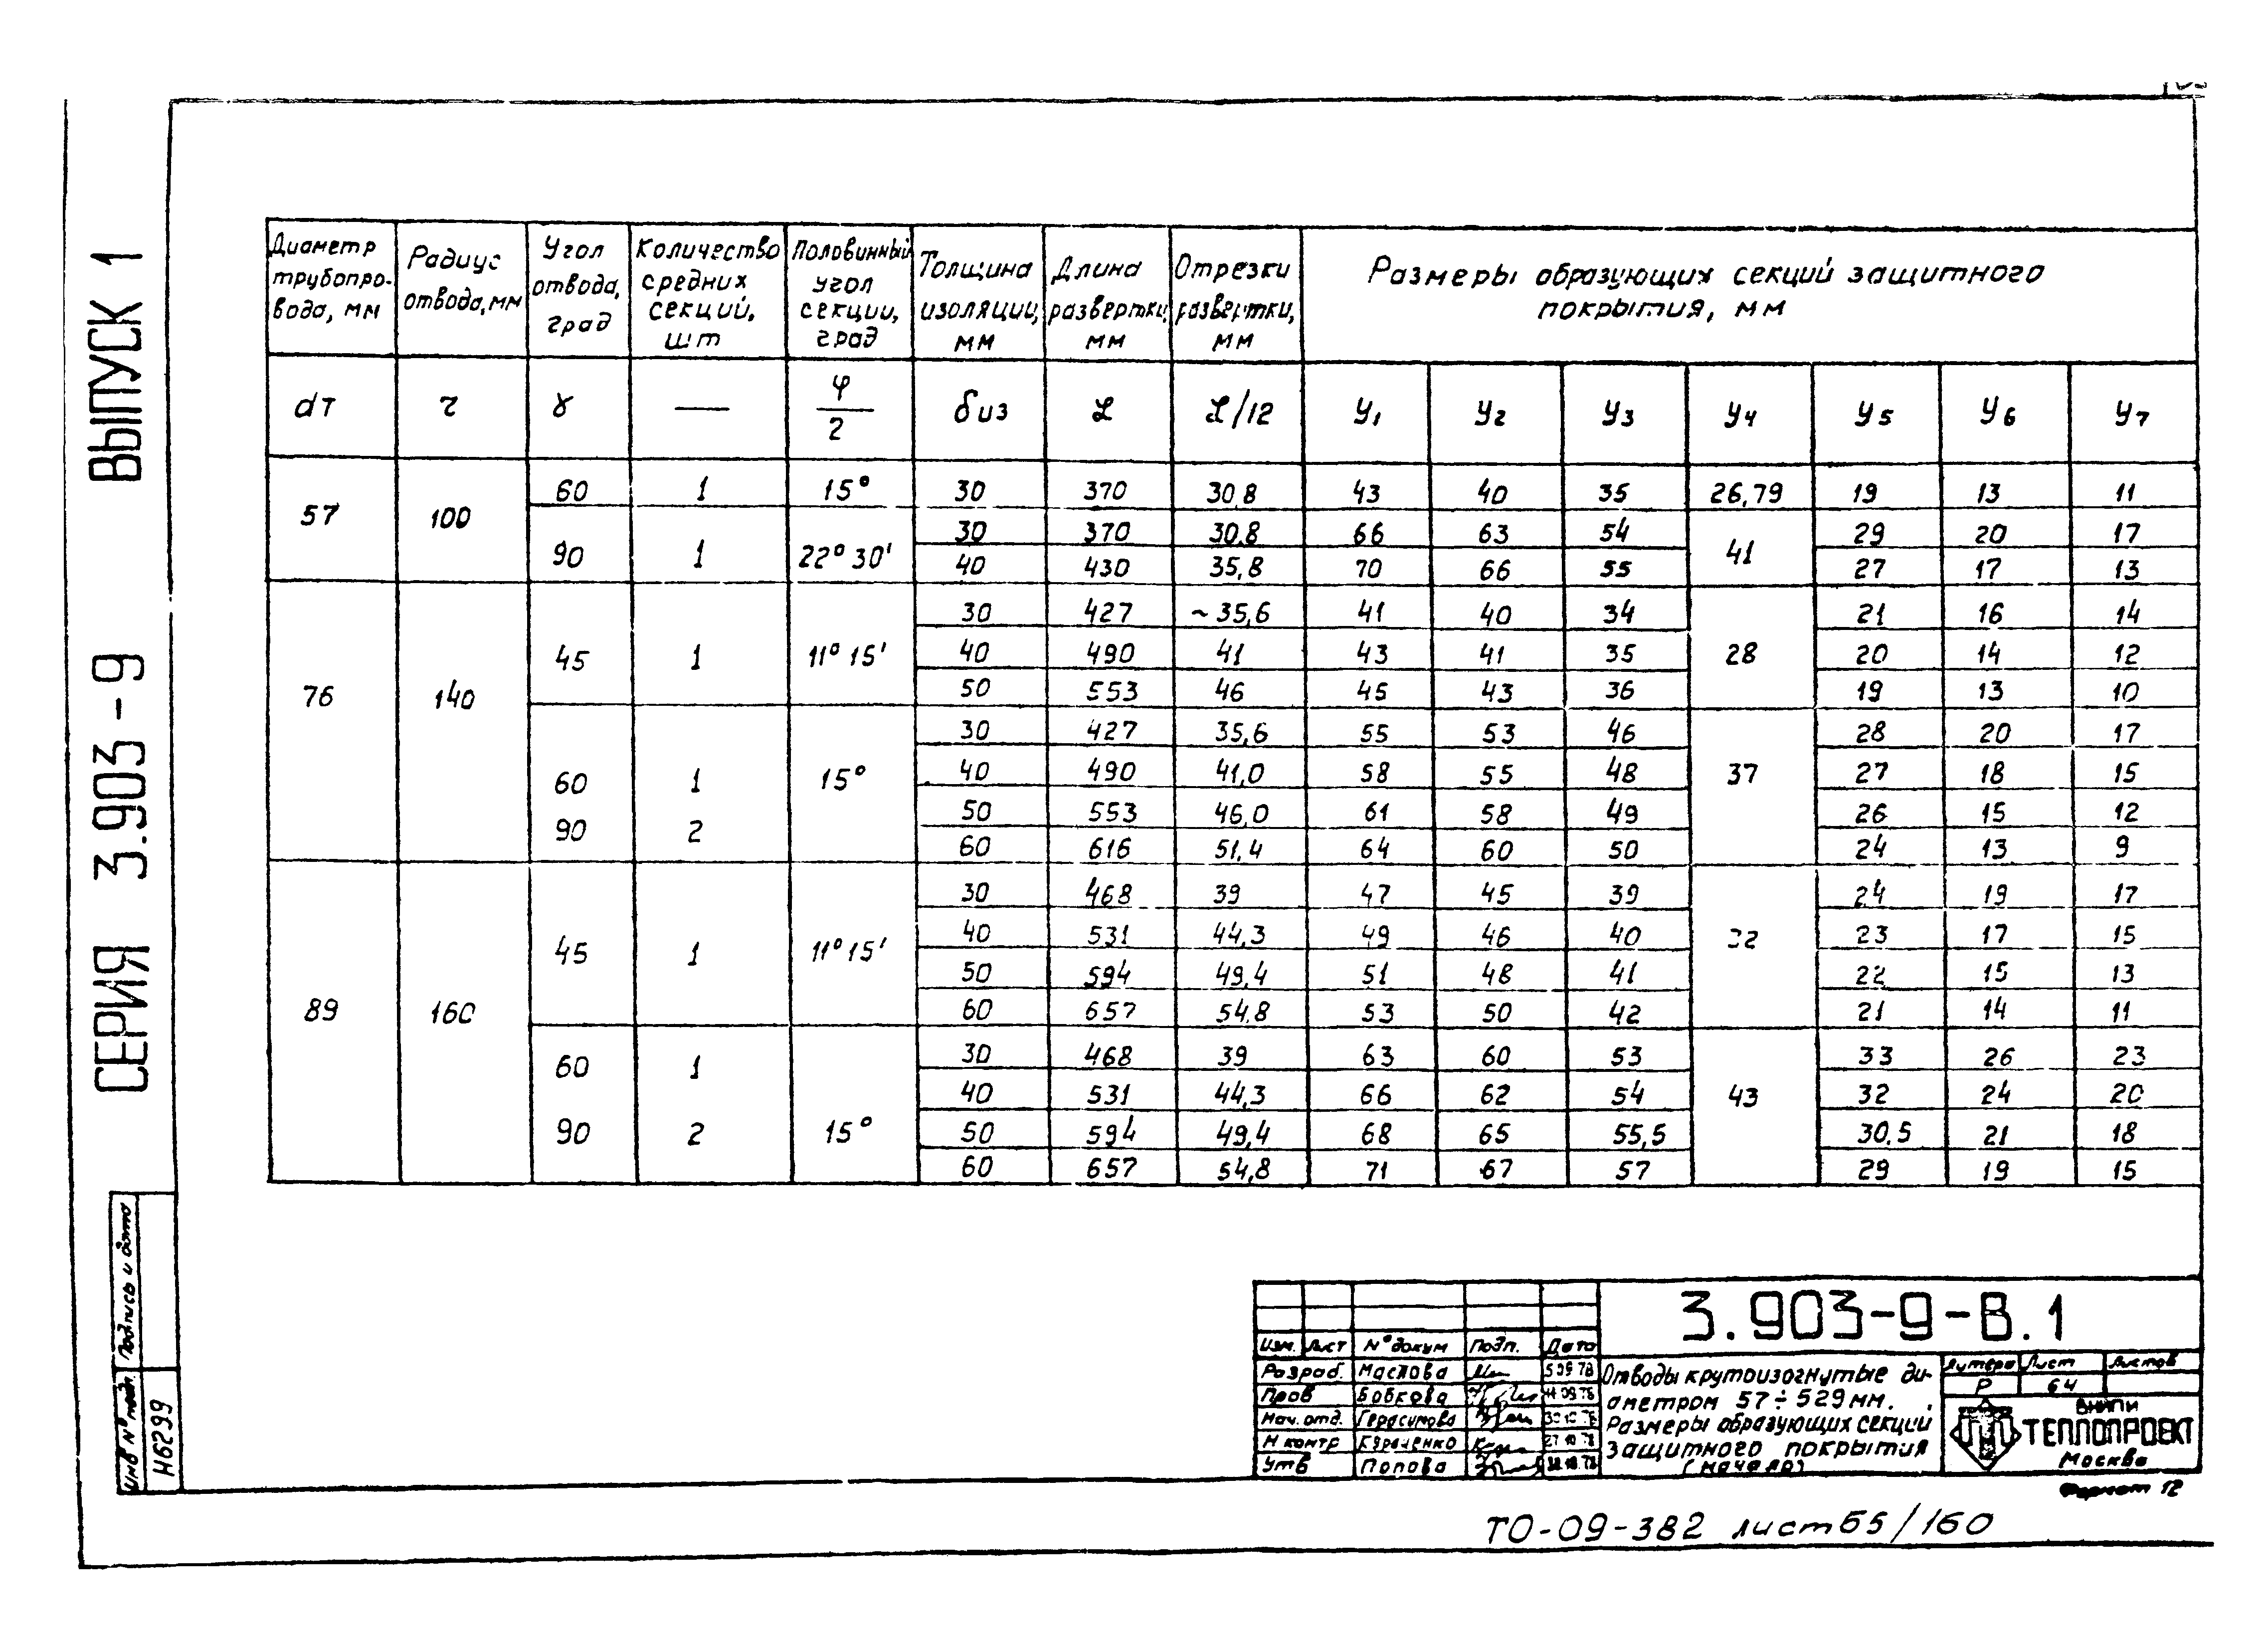 СЕРИЯ 3.903-9 ВЫПУСК 1
Диаметр трубопро-вода, мм | Радиус отвода, мм | Угол отвода, град | Количество средних секций, шт | Половинный угол секции, град | Толщина изоляции, мм | Длина развертки, мм | Отрезки развертки, мм | Размеры образующих секций защитного покрытия, мм
dт | r | γ | — | φ/2 | δиз | L | L/12 | У1 | У2 | У3 | У4 | У5 | У6 | У7
57 | 100 | 60 | 1 | 15° | 30 | 370 | 30,8 | 43 | 40 | 35 | 26,79 | 19 | 13 | 11
90 | 1 | 22° 30' | 30 | 370 | 30,8 | 66 | 63 | 54 | 41 | 29 | 20 | 17
40 | 430 | 35,8 | 70 | 66 | 55 | 27 | 17 | 13
76 | 140 | 45 | 1 | 11° 15' | 30 | 427 | ~35,6 | 41 | 40 | 34 | 28 | 21 | 16 | 14
40 | 490 | 41 | 43 | 41 | 35 | 20 | 14 | 12
50 | 553 | 46 | 45 | 43 | 36 | 19 | 13 | 10
60 | 1 | 15° | 30 | 427 | 35,6 | 55 | 53 | 46 | 37 | 28 | 20 | 17
40 | 490 | 41,0 | 58 | 55 | 48 | 27 | 18 | 15
90 | 2 | 50 | 553 | 46,0 | 61 | 58 | 49 | 26 | 15 | 12
60 | 616 | 51,4 | 64 | 60 | 50 | 24 | 13 | 9
89 | 160 | 45 | 1 | 11° 15' | 30 | 468 | 39 | 47 | 45 | 39 | 32 | 24 | 19 | 17
40 | 531 | 44,3 | 49 | 46 | 40 | 23 | 17 | 15
50 | 594 | 49,4 | 51 | 48 | 41 | 22 | 15 | 13
60 | 657 | 54,8 | 53 | 50 | 42 | 21 | 14 | 11
60 | 1 | 15° | 30 | 468 | 39 | 63 | 60 | 53 | 43 | 33 | 26 | 23
40 | 531 | 44,3 | 66 | 62 | 54 | 32 | 24 | 20
90 | 2 | 50 | 594 | 49,4 | 68 | 65 | 55,5 | 30,5 | 21 | 18
60 | 657 | 54,8 | 71 | 67 | 57 | 29 | 19 | 15
Инв № подл. Подпись и дата
Н6299
3.903-9-В.1
Изм. Лист № докум Подп. Дата
Разраб. Маслова 5 09 78
Пров Бобкова
Нач. отд. Герасимова
Н контр 27 10 78
Утв Попова
Отводы крутоизогнутые ди-
аметром 57÷529мм.
Размеры образующих секции
защитного покрытия
(начало)
Литера Лист Листов
Р 64
ВНИПИ
ТЕПЛОПРОЕКТ
Москва
Формат 12
ТО-09-382 лист65/160